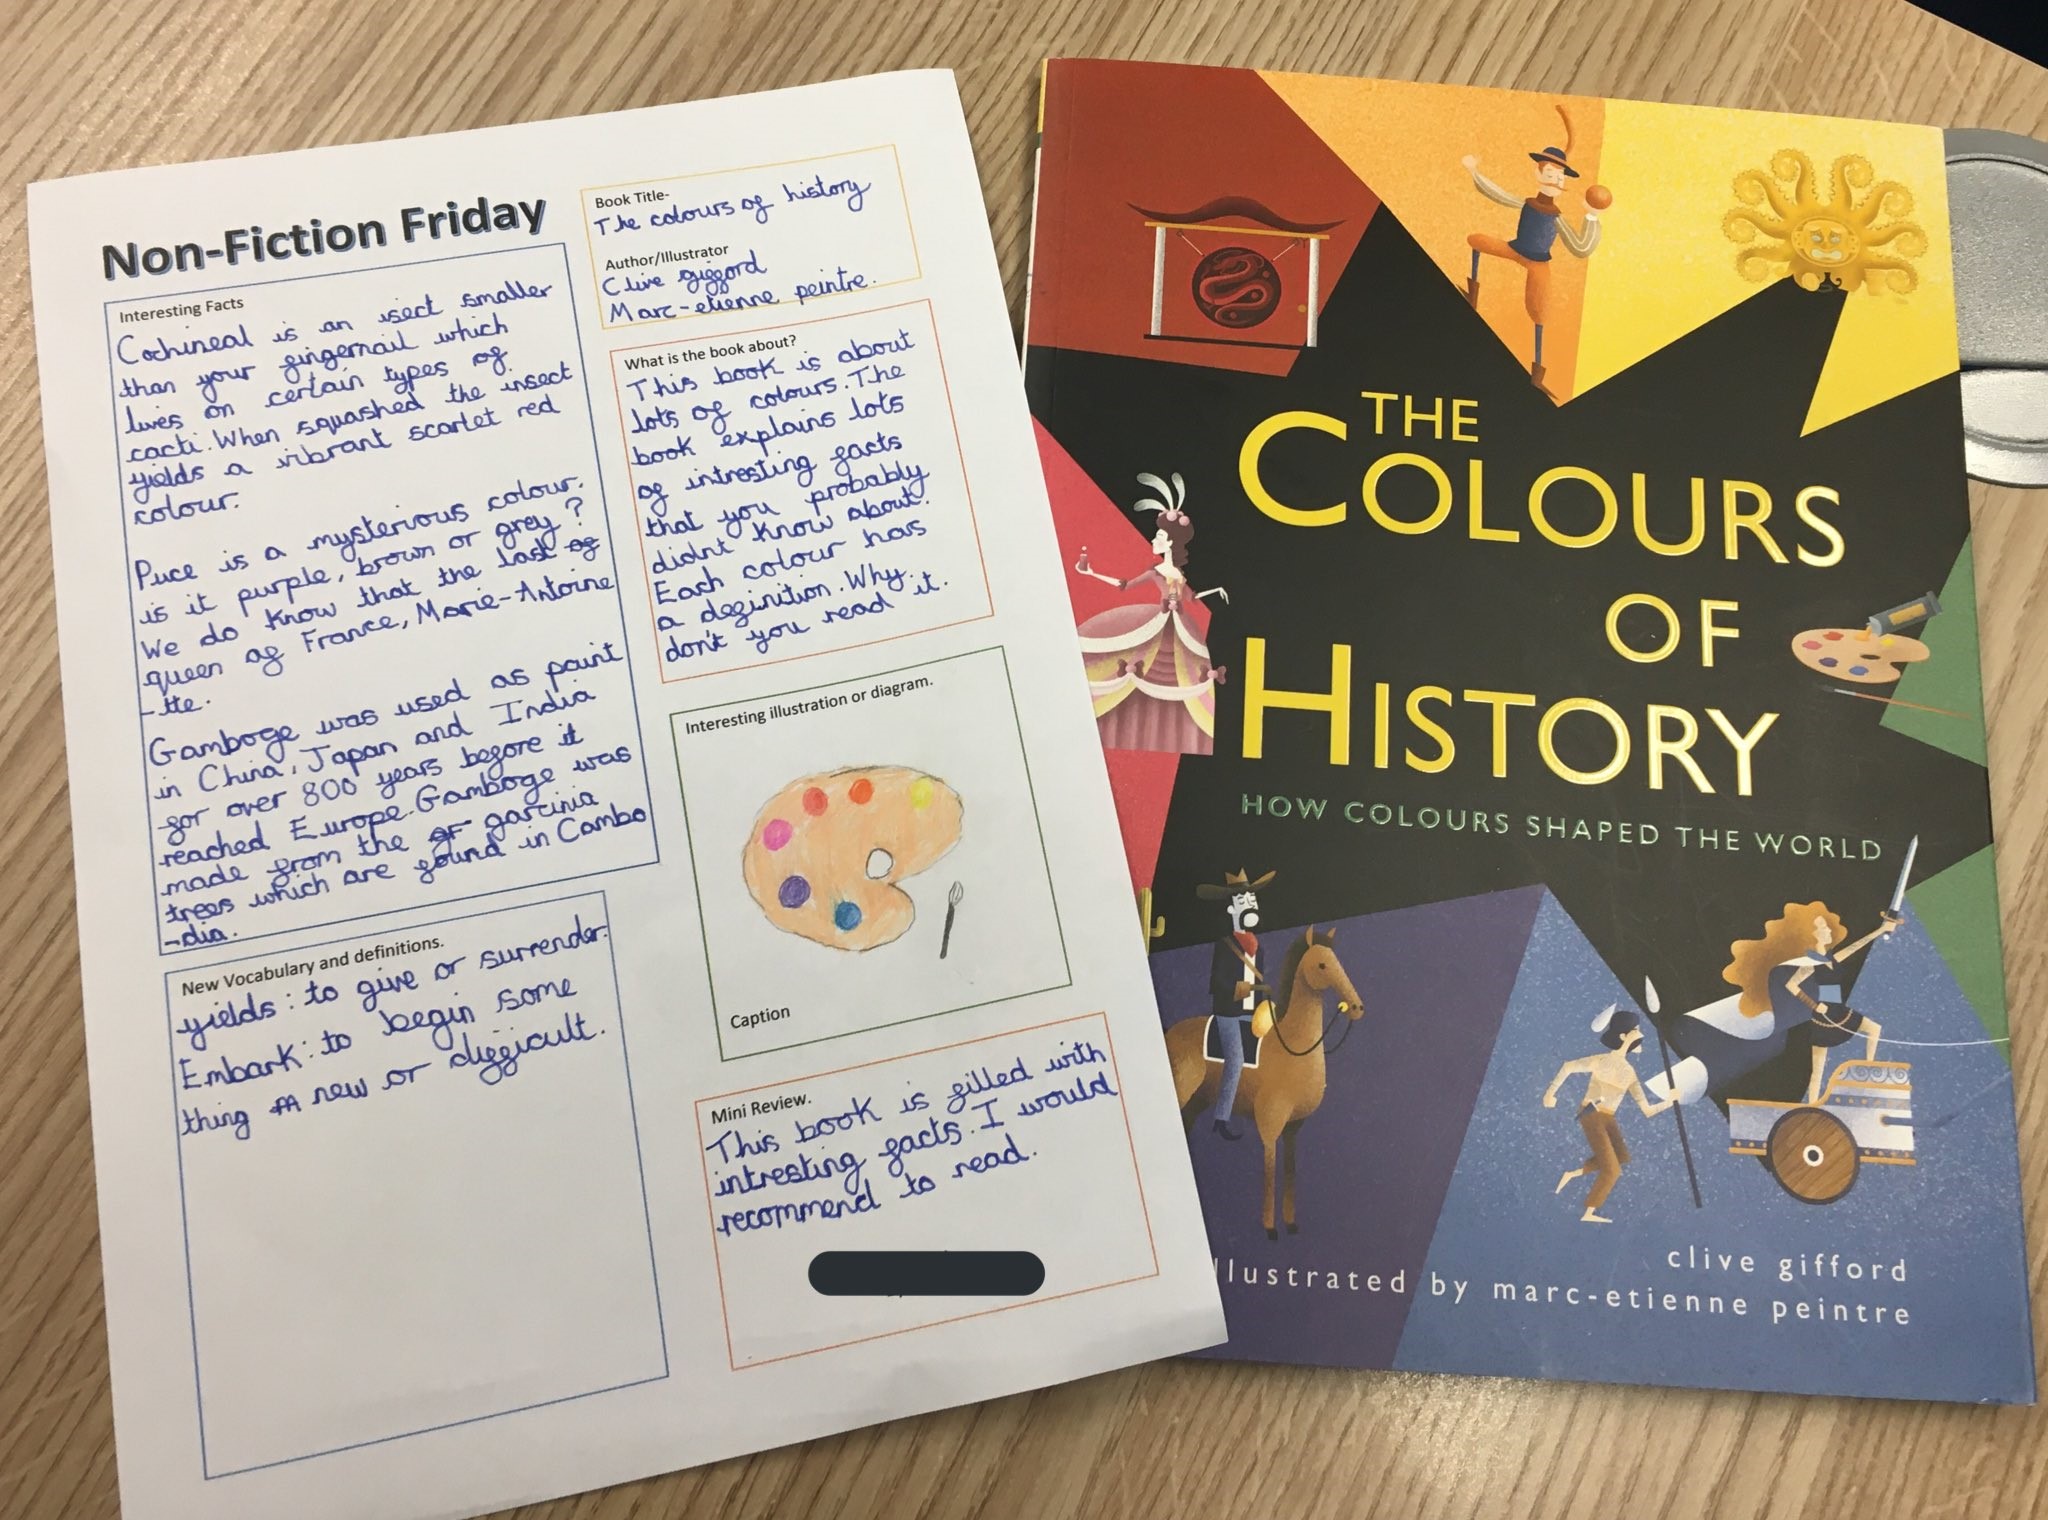 Non-Fiction Friday
Interesting Facts
Cochineal is an isect smaller
than your fingernail which
lives on certain types of
cacti. When squashed the insect
yields a vibrant scarlet red
colour.
Puce is a mysterious colour.
is it purple, brown or grey?
We do know that the last of
queen of France, Marie-Antoine
-tte.
Gamboge was used as paint
in China, Japan and India
for over 800 years before it
reached Europe. Gamboge was
made from the garcinia
trees which are found in Cambo
-dia.
New Vocabulary and definitions.
yields: to give or surrender.
Embark: to begin some
thing new or difficult.
Book Title-
The colours of history
Author/Illustrator
Clive gifford
Marc-etienne peintre.
What is the book about?
This book is about
lots of colours. The
book explains lots
of intresting facts
that you probably
didnt know about.
Each colour has
a definition. Why
don't you read it.
Interesting illustration or diagram.
Caption
Mini Review.
This book is filled with
intresting facts. I would
recommend to read.
THE
COLOURS
OF
HISTORY
HOW COLOURS SHAPED THE WORLD
clive gifford
illustrated by marc-etienne peintre